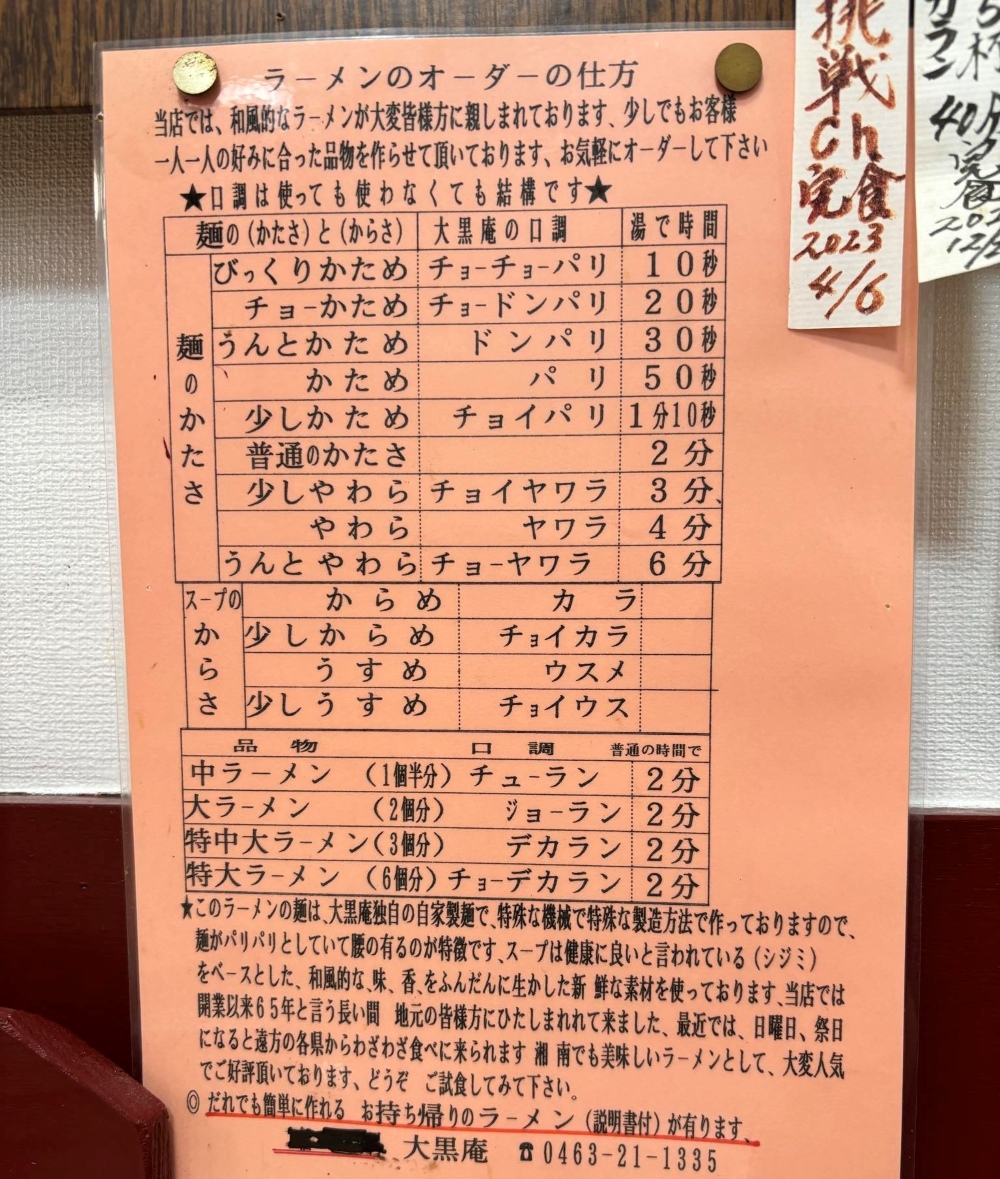 ラーメンのオーダーの仕方
当店では、和風的なラーメンが大変皆様方に親しまれております、少しでもお客様
一人一人の好みに合った品物を作らせて頂いております、お気軽にオーダーして下さい
★口調は使っても使わなくても結構です★
麺の(かたさ)と(からさ) 大黒庵の口調 湯で時間
麺のかたさ
びっくりかため チョーチョーパリ 10秒
チョーかため チョードンパリ 20秒
うんとかため ドンパリ 30秒
かため パリ 50秒
少しかため チョイパリ 1分10秒
普通のかたさ 2分
少しやわら チョイヤワラ 3分、
やわら ヤワラ 4分
うんとやわら チョーヤワラ 6分
スープのからさ
からめ カラ
少しからめ チョイカラ
うすめ ウスメ
少しうすめ チョイウス
品物 口調 普通の時間で
中ラーメン (1個半分) チューラン 2分
大ラーメン (2個分) ジョーラン 2分
特中大ラーメン(3個分) デカラン 2分
特大ラーメン (6個分) チョーデカラン 2分
★このラーメンの麺は、大黒庵独自の自家製麺で、特殊な機械で特殊な製造方法で作っておりますので、
麺がパリパリとしていて腰の有るのが特徴です、スープは健康に良いと言われている(シジミ)
をベースとした、和風的な、味、香、をふんだんに生かした新 鮮な素材を使っております、当店では
開業以来65年と言う長い間 地元の皆様方にひたしまれれて来ました、最近では、日曜日、祭日
になると遠方の各県からわざわざ食べに来られます 湘 南でも美味しいラーメンとして、大変人気
でご好評頂いております、どうぞ ご試食してみて下さい。
◎ だれでも簡単に作れる お持ち帰りのラーメン(説明書付)が有ります、
大黒庵 ☎0463-21-1335
挑戦
Ch
完食
2023
4/6
完食